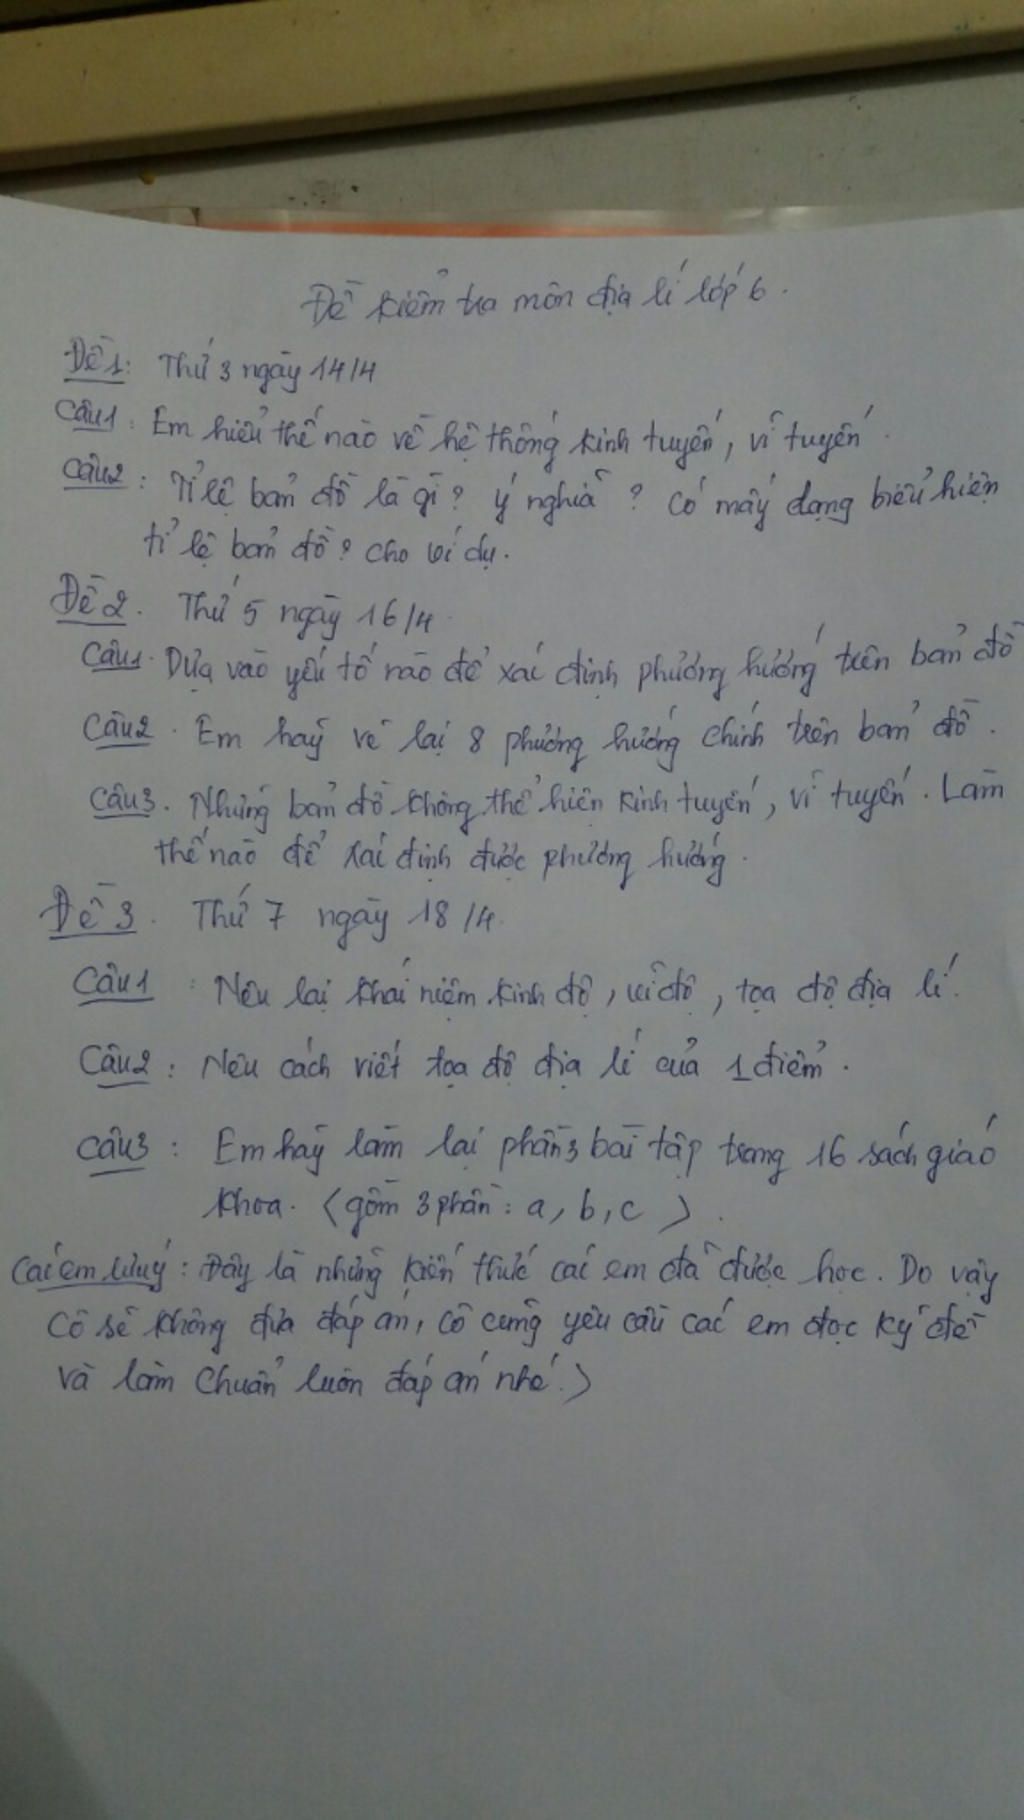 Đề kiểm tra môn địa lí lớp 6.
Đề 1: Thứ 3 ngày 14/4
Câu 1: Em hiểu thế nào về hệ thống kinh tuyến, vĩ tuyến.
Câu 2: Tỉ lệ bản đồ là gì? ý nghĩa? Có mấy dạng biểu hiện
tỉ lệ bản đồ? cho ví dụ.
Đề 2. Thứ 5 ngày 16/4
Câu 1. Dựa vào yếu tố nào để xác định phương hướng trên bản đồ
Câu 2. Em hãy vẽ lại 8 phương hướng chính trên bản đồ.
Câu 3. Những bản đồ không thể hiện kinh tuyến, vĩ tuyến. Làm
thế nào để xác định được phương hướng.
Đề 3. Thứ 7 ngày 18/4.
Câu 1: Nêu lại khái niệm kinh độ, vĩ độ, tọa độ địa lí.
Câu 2: Nêu cách viết tọa độ địa lí của 1 điểm.
Câu 3: Em hãy làm lại phần 3 bài tập trang 16 sách giáo
khoa. (gồm 3 phần: a, b, c).
Các em lưu ý: Đây là những kiến thức các em đã được học. Do vậy
Cô sẽ không đưa đáp án, cô cũng yêu cầu các em đọc kỹ đề
và làm chuẩn luôn đáp án nhé.)